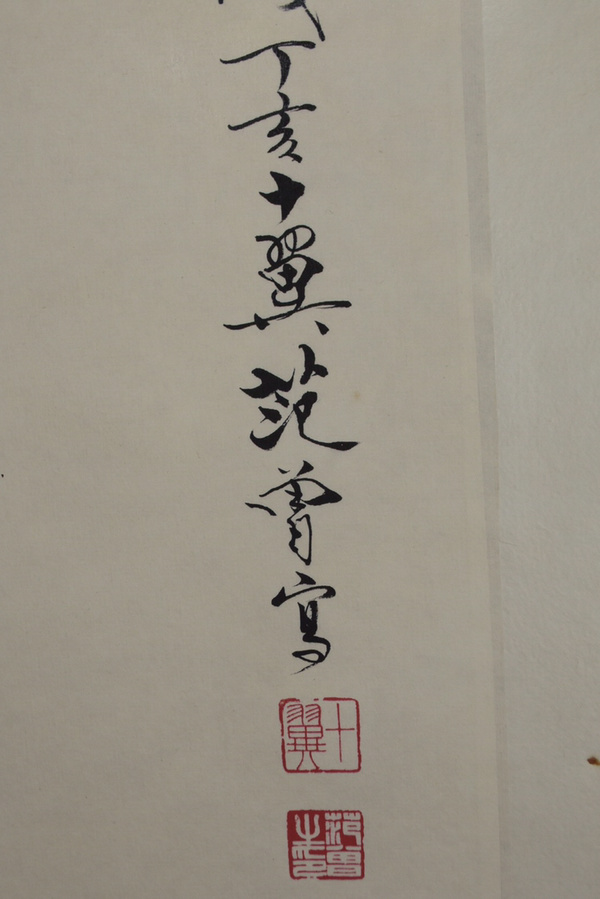 丁亥十翼范曾寫
十翼
范曾之印